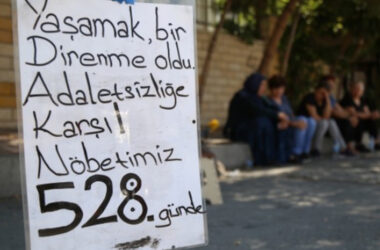 Yaşamak, bir
Direnme oldu.
Adaletsizliğe
Karşı!
Nöbetimiz
528. günde